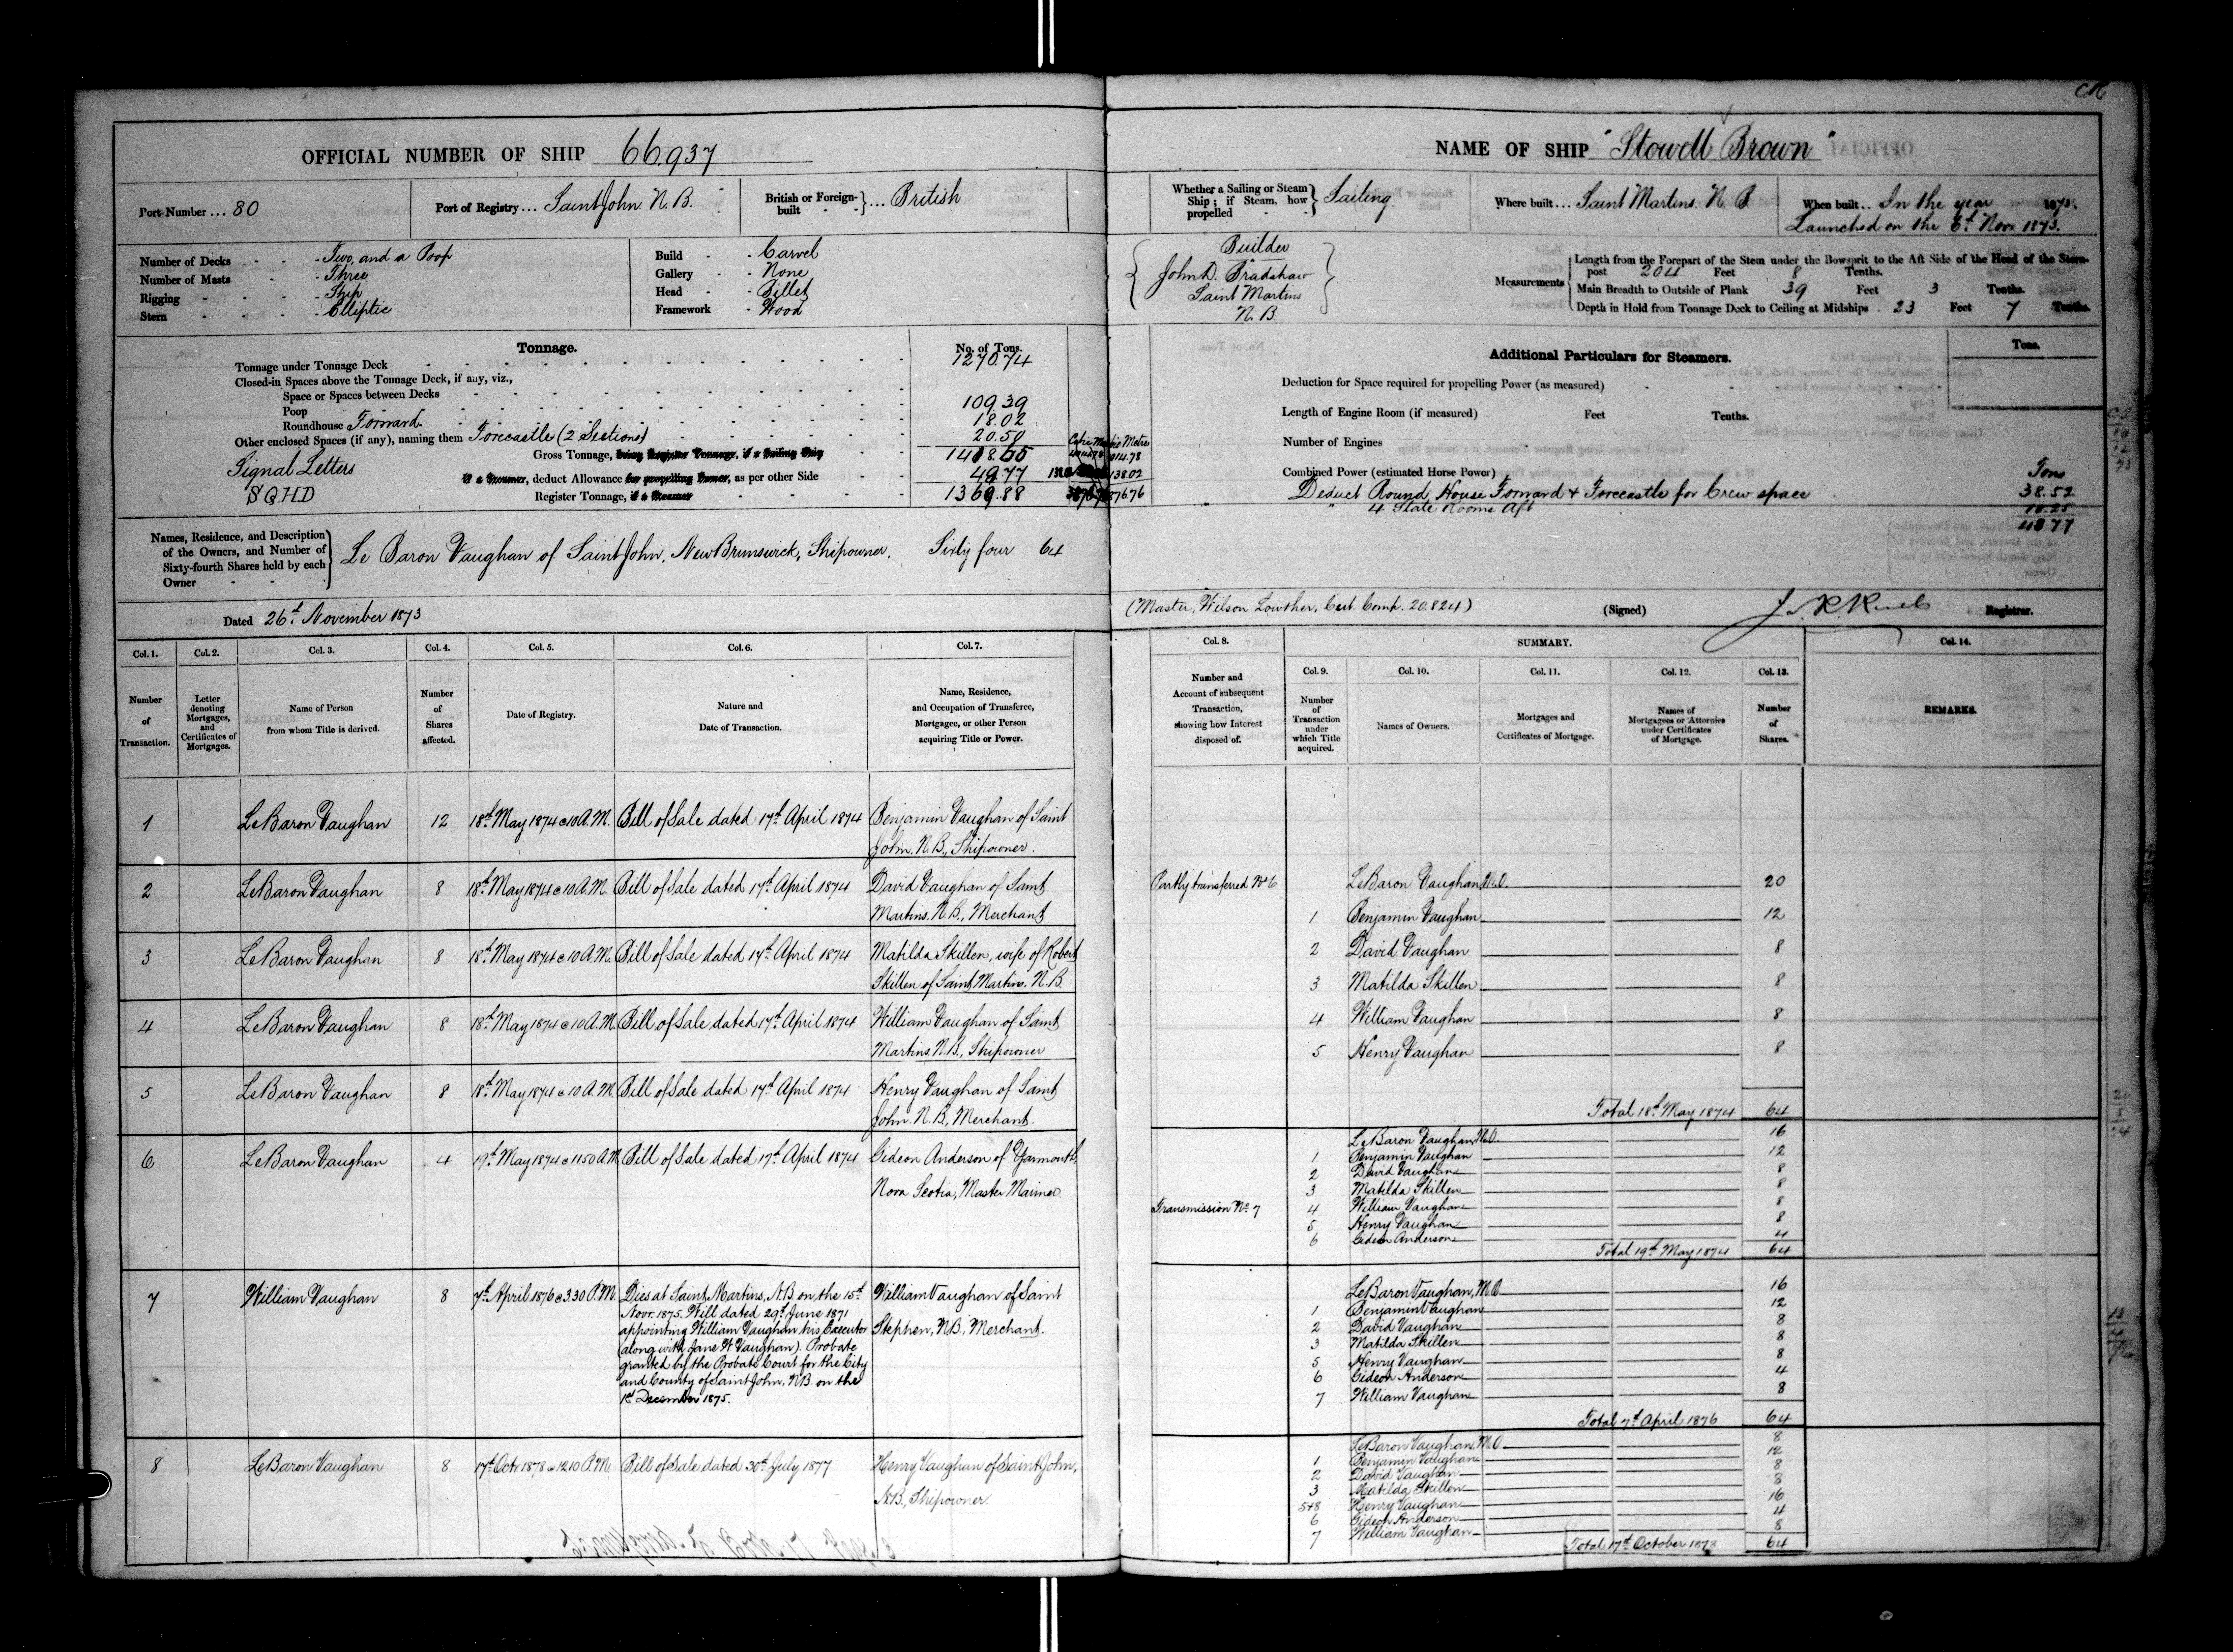 OFFICIAL NUMBER OF SHIP 66.937
Port Number ... 80
Port of Registry ... Saint John N.B.
British or Foreign-built } ... British
Number of Decks - Two, and a Poop
Number of Masts - Three
Rigging - Ship
Stern - Elliptic
Build - Carvel
Gallery - None
Head - Billet
Framework - Wood
Tonnage.
No. of Tons.
Tonnage under Tonnage Deck 1270.74
Closed-in Spaces above the Tonnage Deck, if any, viz.,
Space or Spaces between Decks
Poop 109.39
Roundhouse Forward 18.02
Other enclosed Spaces (if any), naming them Forecastle (2 Sections) 20.50
Gross Tonnage, being Register Tonnage, if a Sailing Ship 1418.65
Signal Letters
if a Steamer, deduct Allowance for propelling Power, as per other Side 48.77
SQHD
Register Tonnage, if a Steamer 1369.88
Names, Residence, and Description
of the Owners, and Number of
Sixty-fourth Shares held by each
Owner
Le Baron Vaughan of Saint John, New Brunswick, Shipowner. Sixty four 64
Dated 26th November 1873
Col. 1. Col. 2. Col. 3. Col. 4. Col. 5. Col. 6. Col. 7.
Number of Transaction.
Letter denoting Mortgages, and Certificates of Mortgages.
Name of Person from whom Title is derived.
Number of Shares affected.
Date of Registry.
Nature and Date of Transaction.
Name, Residence, and Occupation of Transferee, Mortgagee, or other Person acquiring Title or Power.
1 LeBaron Vaughan 12 18th May 1874 @ 10 A.M. Bill of Sale dated 17th April 1874 Benjamin Vaughan of Saint
John. N.B., Shipowner.
2 LeBaron Vaughan 8 18th May 1874 @ 10 A.M. Bill of Sale dated 17th April 1874 David Vaughan of Saint
Martins. N.B., Merchant
3 LeBaron Vaughan 8 18th May 1874 @ 10 A.M. Bill of Sale dated 17th April 1874 Matilda Skillen, wife of Robert
Skillen of Saint Martins. N.B.
4 LeBaron Vaughan 8 18th May 1874 @ 10 A.M. Bill of Sale dated 17th April 1874 William Vaughan of Saint
Martins N.B., Shipowner
5 LeBaron Vaughan 8 18th May 1874 @ 10 A.M. Bill of Sale dated 17th April 1874 Henry Vaughan of Saint
John. N.B., Merchant.
6 LeBaron Vaughan 4 19th May 1874 @ 11.50 A.M. Bill of Sale dated 17th April 1874 Gideon Anderson of Yarmouth,
Nova Scotia, Master Mariner.
7 William Vaughan 8 7th April 1876 @ 3.30 P.M. Dies at Saint Martins, N.B on the 15th William Vaughan of Saint
Novr. 1875. Will dated 29th June 1871
appointing William Vaughan his Executor Stephen, N.B., Merchant.
(along with Jane W Vaughan). Probate
granted by the Probate Court for the City
and County of Saint John, N.B. on the
1st December 1875.
8 LeBaron Vaughan 8 17th Octr 1878 @ 12.10 P.M. Bill of Sale dated 30th July 1877 Henry Vaughan of Saint John,
N.B., Shipowner.
NAME OF SHIP "Stowell Brown"
Whether a Sailing or Steam Ship; if Steam, how propelled } Sailing
Where built ... Saint Martins. N. B
When built .. In the year 1873.
Launched on the 6th Novr. 1873.
Builder
John D. Bradshaw
Saint Martins
N. B.
Measurements
Length from the Forepart of the Stem under the Bowsprit to the Aft Side of the Head of the Stern-
post 204 Feet 8 Tenths.
Main Breadth to Outside of Plank 39 Feet 3 Tenths.
Depth in Hold from Tonnage Deck to Ceiling at Midships . 23 Feet 7 Tenths.
Additional Particulars for Steamers.
Tons.
Deduction for Space required for propelling Power (as measured)
Length of Engine Room (if measured) Feet Tenths.
Number of Engines
Combined Power (estimated Horse Power) Tons
Deduct Round House Forward & Forecastle for Crew space 38.52
" 4 State Rooms Aft 10.25
48.77
(Master, Wilson Lowther, Cert. Comp. 20.824)
(Signed) Registrar.
Col. 8. SUMMARY. Col. 14.
Col. 9. Col. 10. Col. 11. Col. 12. Col. 13.
Number and Account of subsequent Transaction, showing how Interest disposed of.
Number of Transaction under which Title acquired.
Names of Owners.
Mortgages and Certificates of Mortgage.
Names of Mortgagees or Attornies under Certificates of Mortgage.
Number of Shares.
REMARKS.
Partly transferred No 6 LeBaron Vaughan, M.O. 20
1 Benjamin Vaughan 12
2 David Vaughan 8
3 Matilda Skillen 8
4 William Vaughan 8
5 Henry Vaughan 8
Total 18th May 1874 64
LeBaron Vaughan, M.O. 16
1 Benjamin Vaughan 12
2 David Vaughan 8
3 Matilda Skillen 8
Transmission No. 7 4 William Vaughan 8
5 Henry Vaughan 8
6 Gideon Anderson 4
Total 19th May 1874 64
LeBaron Vaughan, M.O. 16
1 Benjamin Vaughan 12
2 David Vaughan 8
3 Matilda Skillen 8
5 Henry Vaughan 8
6 Gideon Anderson 4
7 William Vaughan 8
Total 7th April 1876 64
LeBaron Vaughan, M.O. 8
1 Benjamin Vaughan 12
2 David Vaughan 8
3 Matilda Skillen 8
5+8 Henry Vaughan 16
6 Gideon Anderson 4
7 William Vaughan 8
Total 17th October 1878 64